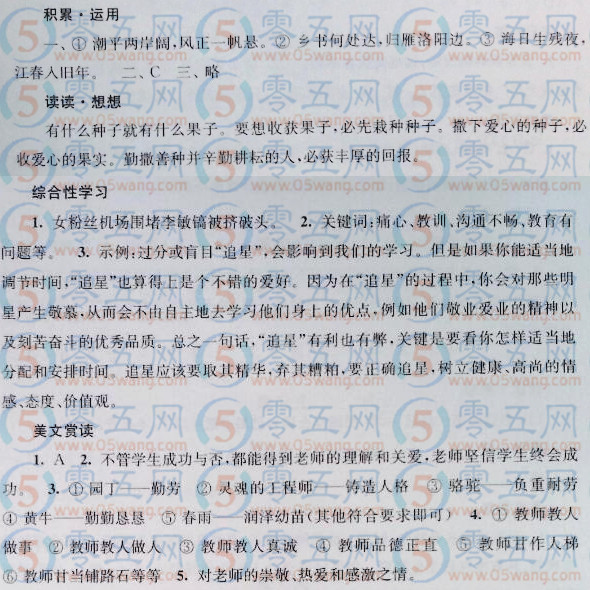 积累·运用
一、① 潮平两岸阔,风正一帆悬。② 乡书何处达,归雁洛阳边。③ 海日生残夜,
江春入旧年。 二、C 三、略
读读·想想
有什么种子就有什么果子。要想收获果子,必先栽种种子。撒下爱心的种子,必
收爱心的果实。勤撒善种并辛勤耕耘的人,必获丰厚的回报。
综合性学习
1. 女粉丝机场围堵李敏镐被挤破头。 2. 关键词:痛心、教训、沟通不畅、教育有
问题等。 3. 示例:过分或盲目“追星”,会影响到我们的学习。但是如果你能适当地
调节时间,“追星”也算得上是个不错的爱好。因为在“追星”的过程中,你会对那些明
星产生敬慕,从而会不由自主地去学习他们身上的优点,例如他们敬业爱业的精神以
及刻苦奋斗的优秀品质。总之一句话,“追星”有利也有弊,关键是要看你怎样适当地
分配和安排时间。追星应该要取其精华,弃其糟粕,要正确追星,树立健康、高尚的情
感、态度、价值观。
美文赏读
1. A 2. 不管学生成功与否,都能得到老师的理解和关爱,老师坚信学生终会成
功。 3. ① 园丁——勤劳 ② 灵魂的工程师——铸造人格 ③ 骆驼——负重耐劳
④ 黄牛——勤勤恳恳 ⑤ 春雨——润泽幼苗(其他符合要求即可) 4. ① 教师教人
做事 ② 教师教人做人 ③ 教师教人真诚 ④ 教师品德正直 ⑤ 教师甘作人梯
⑥ 教师甘当铺路石等等 5. 对老师的崇敬、热爱和感激之情。
零五网
www.05wang.com